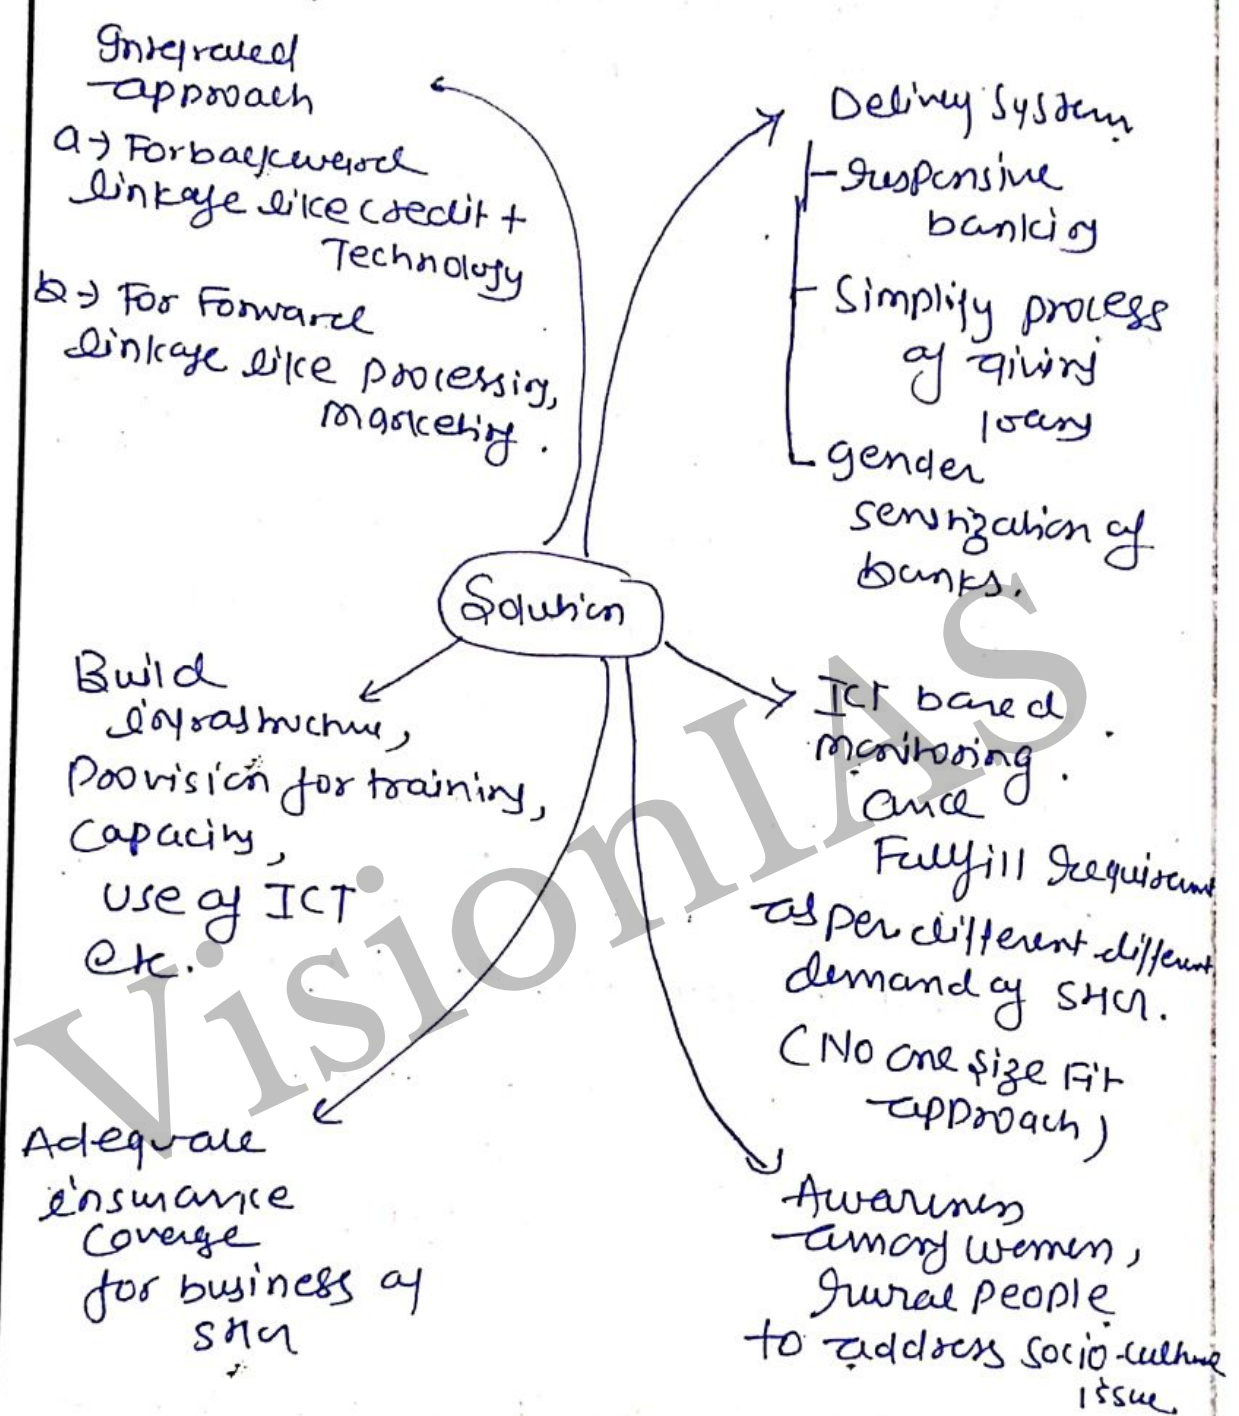 Integrated
approach
a → For backward
linkage like credit +
Technology
b → For Forward
linkage like processing,
marketing.
Delivery System
responsive
banking
Simplify process
of giving
loans
gender
sensitization of
banks.
Solution
Build
infrastructure,
Provision for training,
Capacity,
use of ICT
etc.
ICT based
monitoring.
and
Fullfill requirement
as per different different
demand of SHG.
(No one size Fit
approach)
Adequate
insurance
Coverge
for business of
SHG
Awareness
among women,
rural people
to address socio-culture
issue.
VisionIAS